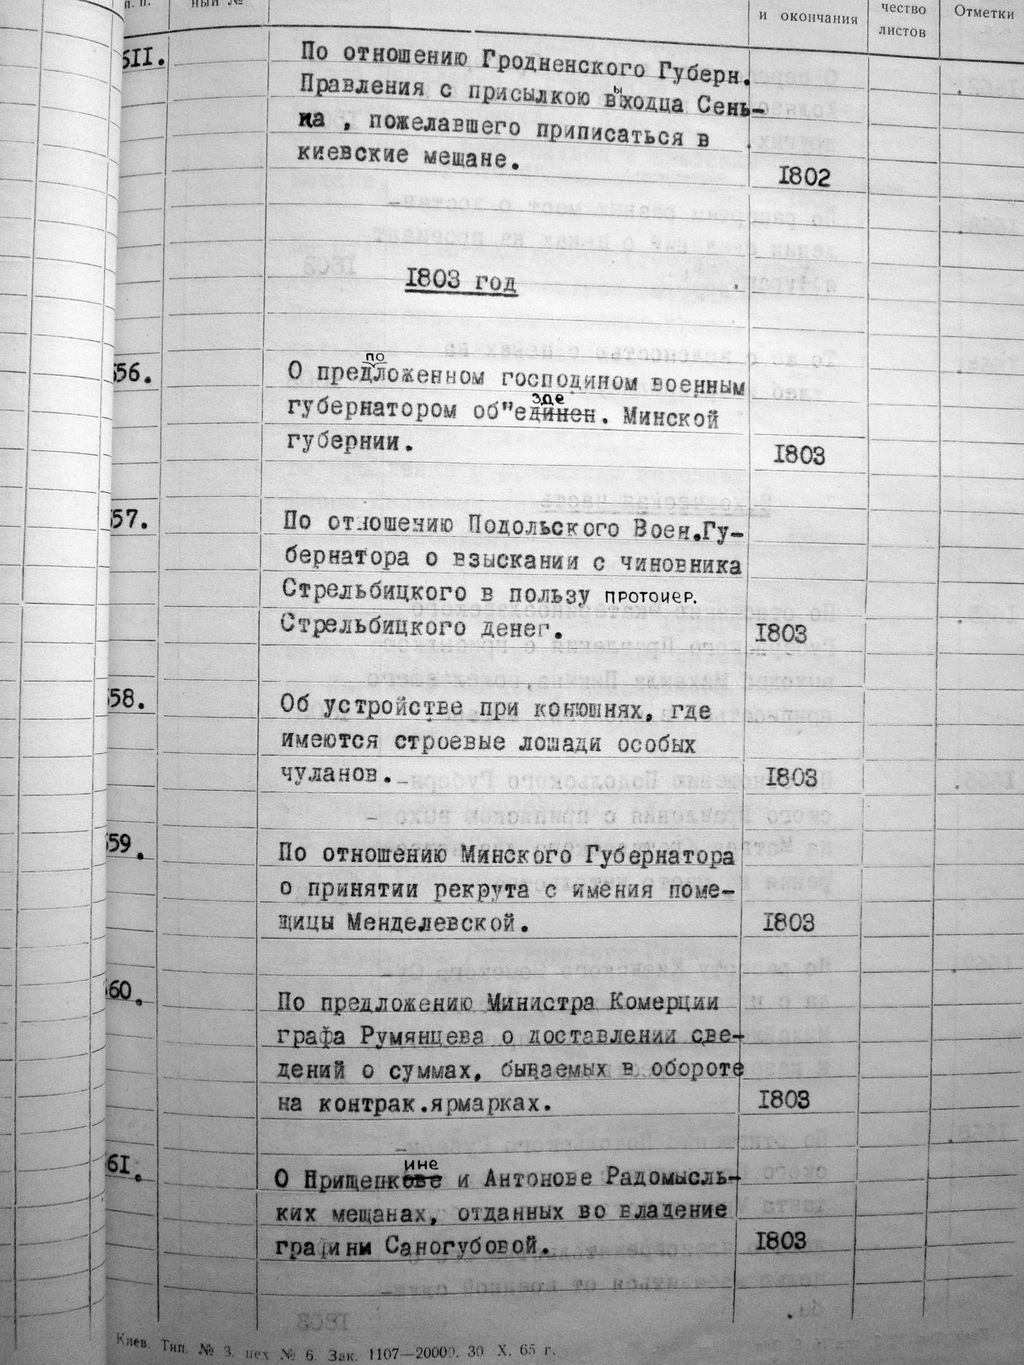 п. п.
ный №
и окончания
чество
листов
Отметки
5II.
По отношению Гродненского Губерн.
Правления с присылкою выходца Сень-
ка , пожелавшего приписаться в
киевские мещане.
I802
I803 год
56.
по
О предложенном господином военным
зде
губернатором об"единен. Минской
губернии.
I803
57.
По отношению Подольского Воен.Гу-
бернатора о взыскании с чиновника
Стрельбицкого в пользу протоиер.
Стрельбицкого денег.
I803
58.
Об устройстве при конюшнях, где
имеются строевые лошади особых
чуланов.
I803
59.
По отношению Минского Губернатора
о принятии рекрута с имения поме-
щицы Менделевской.
I803
60.
По предложению Министра Комерции
графа Румянцева о доставлении све-
дений о суммах, бываемых в обороте
на контрак.ярмарках.
I803
6I.
ине
О Прищепкове и Антонове Радомысль-
ких мещанах, отданных во владение
графини Саногубовой.
I803
Киев. Тип. № 3. цех № 6. Зак. 1107—20000. 30 X. 65 г.